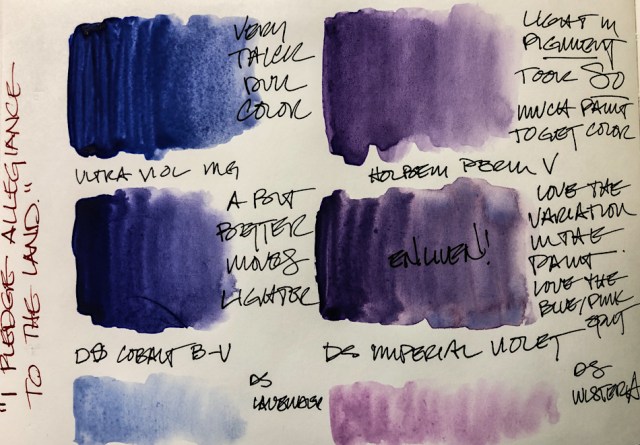 "I PLEDGE ALLEGIANCE
TO THE LAND."
VERY
THICK
DULL
COLOR
ULTRA VIOL MG
LIGHT IN
PIGMENT
TOOK SO
MUCH PAINT
TO GET COLOR
HOLBEIN PERM V
A BIT
BETTER
MOVES
LIGHTER
DS COBALT B-V
ENLIVEN!
LOVE THE
VARIATION
IN THE
PAINT.
LOVE THE
BLUE/PINK
DS IMPERIAL VIOLET
DS
LAVENDER
DS
WISTERIA